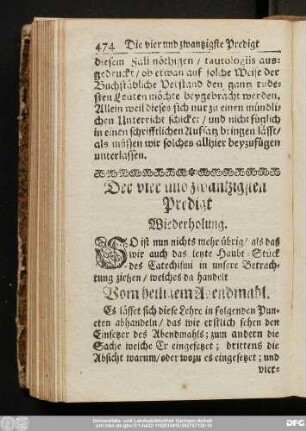 474 Die vier und zwantzigste Predigt
diesem Fall nöthigen / tautologiis aus-
gedruckt / ob etwan auf solche Weise der
Buchstäbliche Verstand den gantz rude-
sten Leuten möchte beygebracht werden.
Allein weil dieses sich nur zu einen mündli-
chen Unterricht schicket / und nicht füglich
in einen schrifftlichen Aufsatz bringen lässt /
als müssen wir solches allhier beyzufügen
unterlassen.
Der vier und zwantzigsten
Predigt
Wiederholung.
SO ist nun nichts mehr übrig / als daß
wir auch das letzte Haubt-Stück
des Catechismi in unsere Betrach-
tung ziehen / welches da handelt
Vom heiligem Abendmahl.
Es lässet sich diese Lehre in folgenden Pun-
cten abhandeln / das wir erstlich sehen den
Einsetzer des Abendmahls; zum andern die
Sache welche Er eingesetzet; drittens die
Absicht warum / oder wozu es eingesetzet; und
vier-